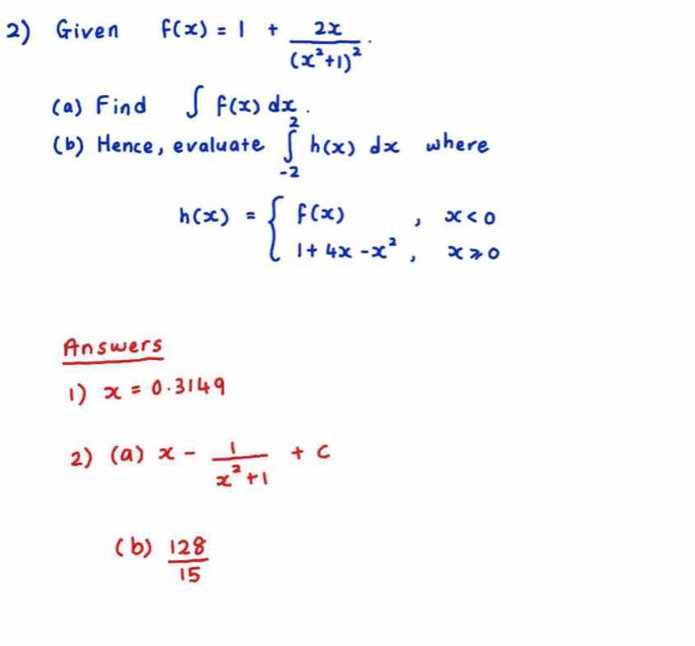 2) Given f(x) = 1 + 2x/(x²+1)².
(a) Find ∫ f(x) dx.
(b) Hence, evaluate ∫₋₂² h(x) dx where
h(x) = { f(x) , x < 0
1 + 4x - x² , x ⩾ 0
Answers
1) x = 0.3149
2) (a) x - 1/(x²+1) + c
(b) 128/15